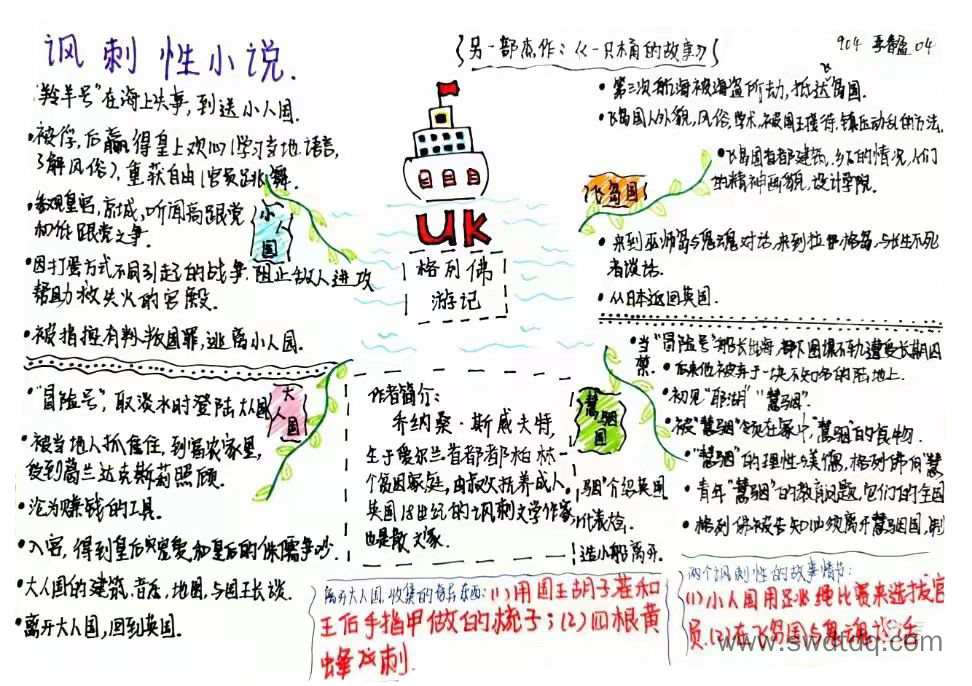 讽刺性小说.
另一部杰作:《一只木桶的故事》
904
04
"羚羊号"在海上失事,到送小人国.
·被俘,后赢得皇上欢心(学习当地语言,
了解风俗),重获自由(官员跳舞.
·参观皇宫,京城,听闻高跟党
和低跟党之争.
·因打蛋方式不同引起的战争,阻止敌人进攻
帮助救失火的宫殿.
·被指控有判叛国罪,逃离小人国.
小人国
UK
格列佛
游记
·第三次航海被海盗所劫,抵达岛国.
·飞岛国人外貌,风俗,学术,被国王接待.镇压动乱的方法.
·飞岛国首都建筑,乡下的情况,人们
的精神面貌,设计学院.
飞岛国
·来到巫师岛与鬼魂对话,来到拉格岛,与长生不死
者谈话.
·从日本返回英国.
·"冒险号",取淡水时登陆大人国
·被当地人抓住,到富农家里,
受到葛兰达克斯莉照顾.
·沦为赚钱的工具.
·入宫,得到皇后宠爱,和皇后的侏儒争吵.
·大人国的建筑,音乐,地图,与国王长谈.
·离开大人国,回到英国.
大人国
作者简介:
乔纳桑·斯威夫特,
生于爱尔兰首都都柏林一
个贫困家庭,由叔父抚养成人,
英国18世纪的讽刺文学作家,
也是散文家.
慧骃国
·当"冒险号"船长出海,部下图谋不轨遭受长期囚
禁.·后来他被弃于一块不知名的陆地上.
·初见"耶胡""慧骃".
·被"慧骃"领在家中,"慧骃"的食物.
·"慧骃"的理性与美德,格列佛向"慧
骃"介绍英国
·青年"慧骃"的教育问题,它们的全国
代表会.
·格列佛被告知必须离开慧骃国,制
造小船离开.
离开大人国,收集的每件东西:(1)用国王胡子茬和
王后手指甲做的梳子;(2)四根黄
蜂刺.
两个讽刺性的故事情节:
(1)小人国用跳绳比赛来选拔官
员.(2)在飞岛国与鬼魂谈话
www.swdtdq.com